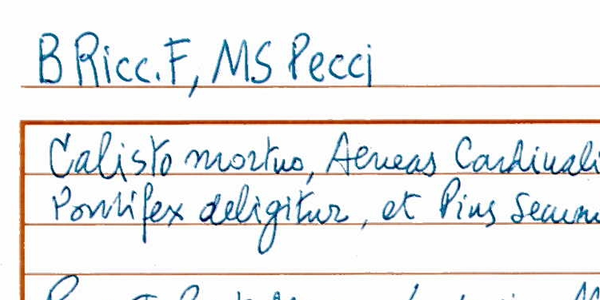 B Ricc. F, MS Pecci
Calisto mortuo, Aeneas Cardinali
Pontifex deligitur, et Pius Secun